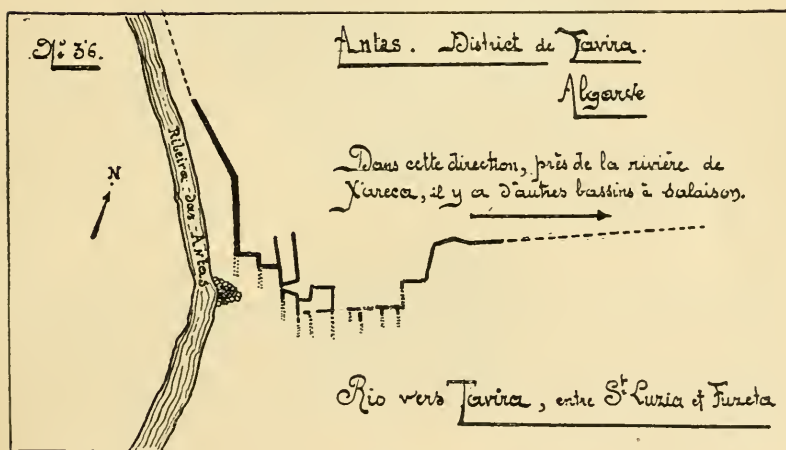 Nº 36.
Antas. District de Tavira.
Algarve
Dans cette direction, près de la rivière de
Xareca, il y a d'autres bassins à salaison.
N
Ribeira das Antas
Rio vers Tavira, entre St Luzia et Fuzeta